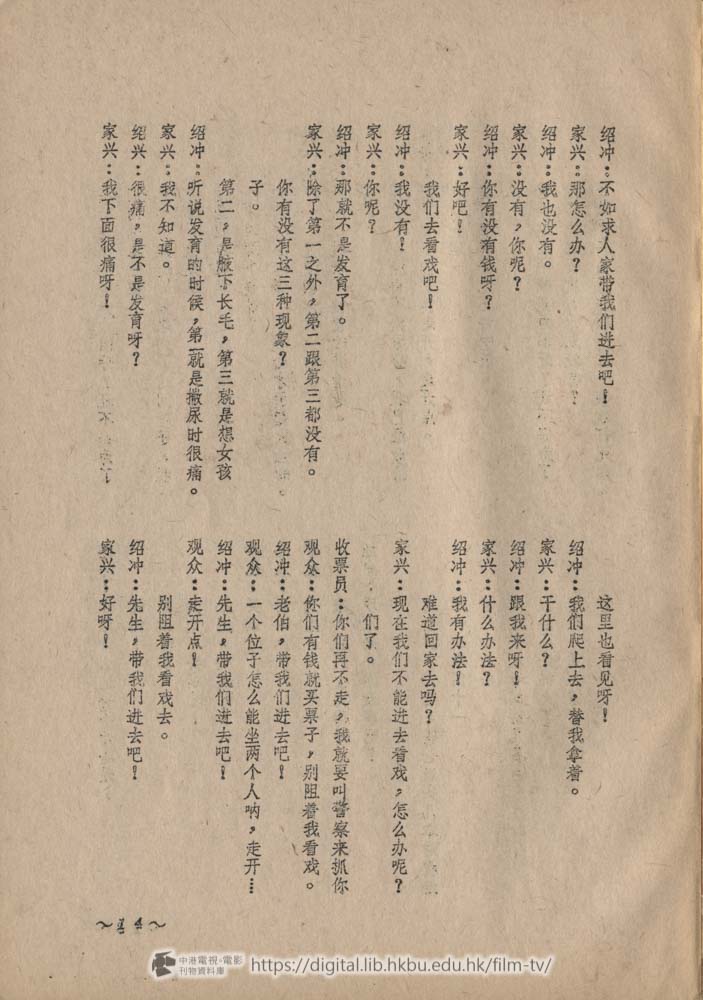 家兴：我下面很痛呀！
绍兴：很痛，是不是发育呀？
家兴：我不知道。
绍冲：听说发育的时候，第一就是撒尿时很痛。
第二，是腋下长毛，第三就是想女孩
子。
你有没有这三种现象？
家兴：除了第一之外，第二跟第三都没有。
绍冲：那就不是发育了。
家兴：你呢？
绍冲：我没有！
我们去看戏吧！
家兴：好吧！
绍冲：你有没有钱呀？
家兴：没有，你呢？
绍冲：我也没有。
家兴：那怎么办？
绍冲：不如求人家带我们进去吧！
家兴：好呀！
绍冲：先生，带我们进去吧！
别阻着我看戏去。
观众：走开点！
绍冲：先生，带我们进去吧！
观众：一个位子怎么能坐两个人呐，走开…
绍冲：老伯，带我们进去吧！
观众：你们有钱就买票子，别阻着我看戏。
收票员：你们再不走，我就要叫警察来抓你
们了。
家兴：现在我们不能进去看戏，怎么办呢？
难道回家去吗？
绍冲：我有办法！
家兴：什么办法？
绍冲：跟我来呀！
家兴：干什么？
绍冲：我们爬上去，替我拿着。
这里也看见呀！
中港電視·電影
刊物資料庫
https://digital.lib.hkbu.edu.hk/film-tv/